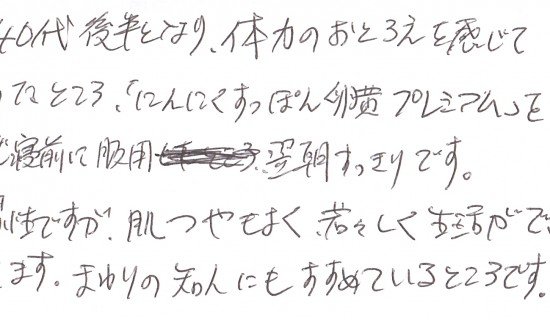 40代後半となり、体力のおとろえを感じて
ったところ、「にんにくすっぽん卵黄プレミアム」を
寝前に服用 翌朝すっきりです。
性ですが、肌つやもよく、若々しく生活がで
ます。まわりの知人にもすすめているところです。